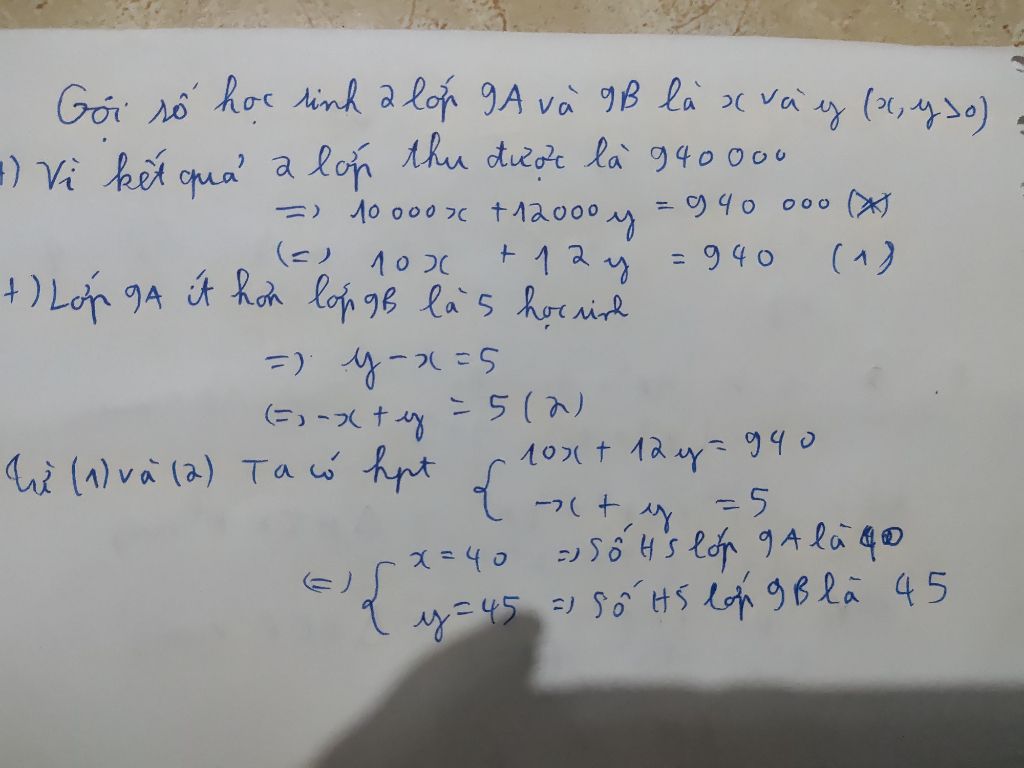 Gọi số học sinh 2 lớp 9A và 9B là x và y (x, y>0)
+) Vì kết quả 2 lớp thu được là 940000
=> 10000x + 12000y = 940 000
(=) 10x + 12y = 940 (1)
+) Lớp 9A ít hơn lớp 9B là 5 học sinh
=> y - x = 5
(=) -x + y = 5 (2)
Từ (1) và (2) Ta có hpt { 10x + 12y = 940
-x + y = 5
(=) { x = 40 => Số HS lớp 9A là 40
y = 45 => Số HS lớp 9B là 45